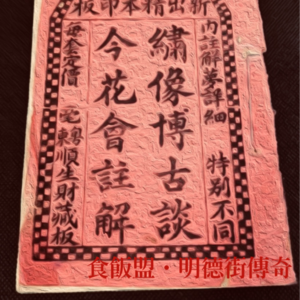 新出精本印板
內註解夢詳細 特别不同
繡像博古談
今花會註解
每套定價
粵東順生財藏板
食飯盟·明德街傳奇